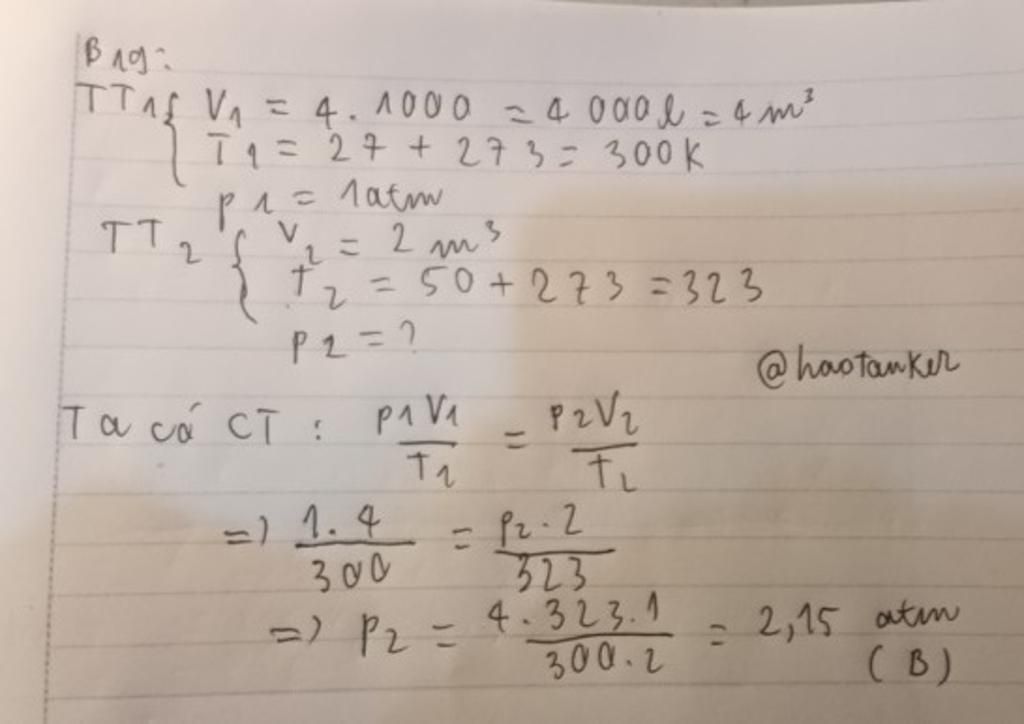 B19:
TT1 { V1 = 4.1000 = 4000l = 4m³
T1 = 27 + 273 = 300K
p1 = 1atm
TT2 { V2 = 2 m³
T2 = 50 + 273 = 323
p2 = ?
@haotanker
Ta có CT : p1V1/T1 = p2V2/T2
=) 1.4/300 = p2.2/323
=) p2 = 4.323.1/300.2 = 2,15 atm
(B)